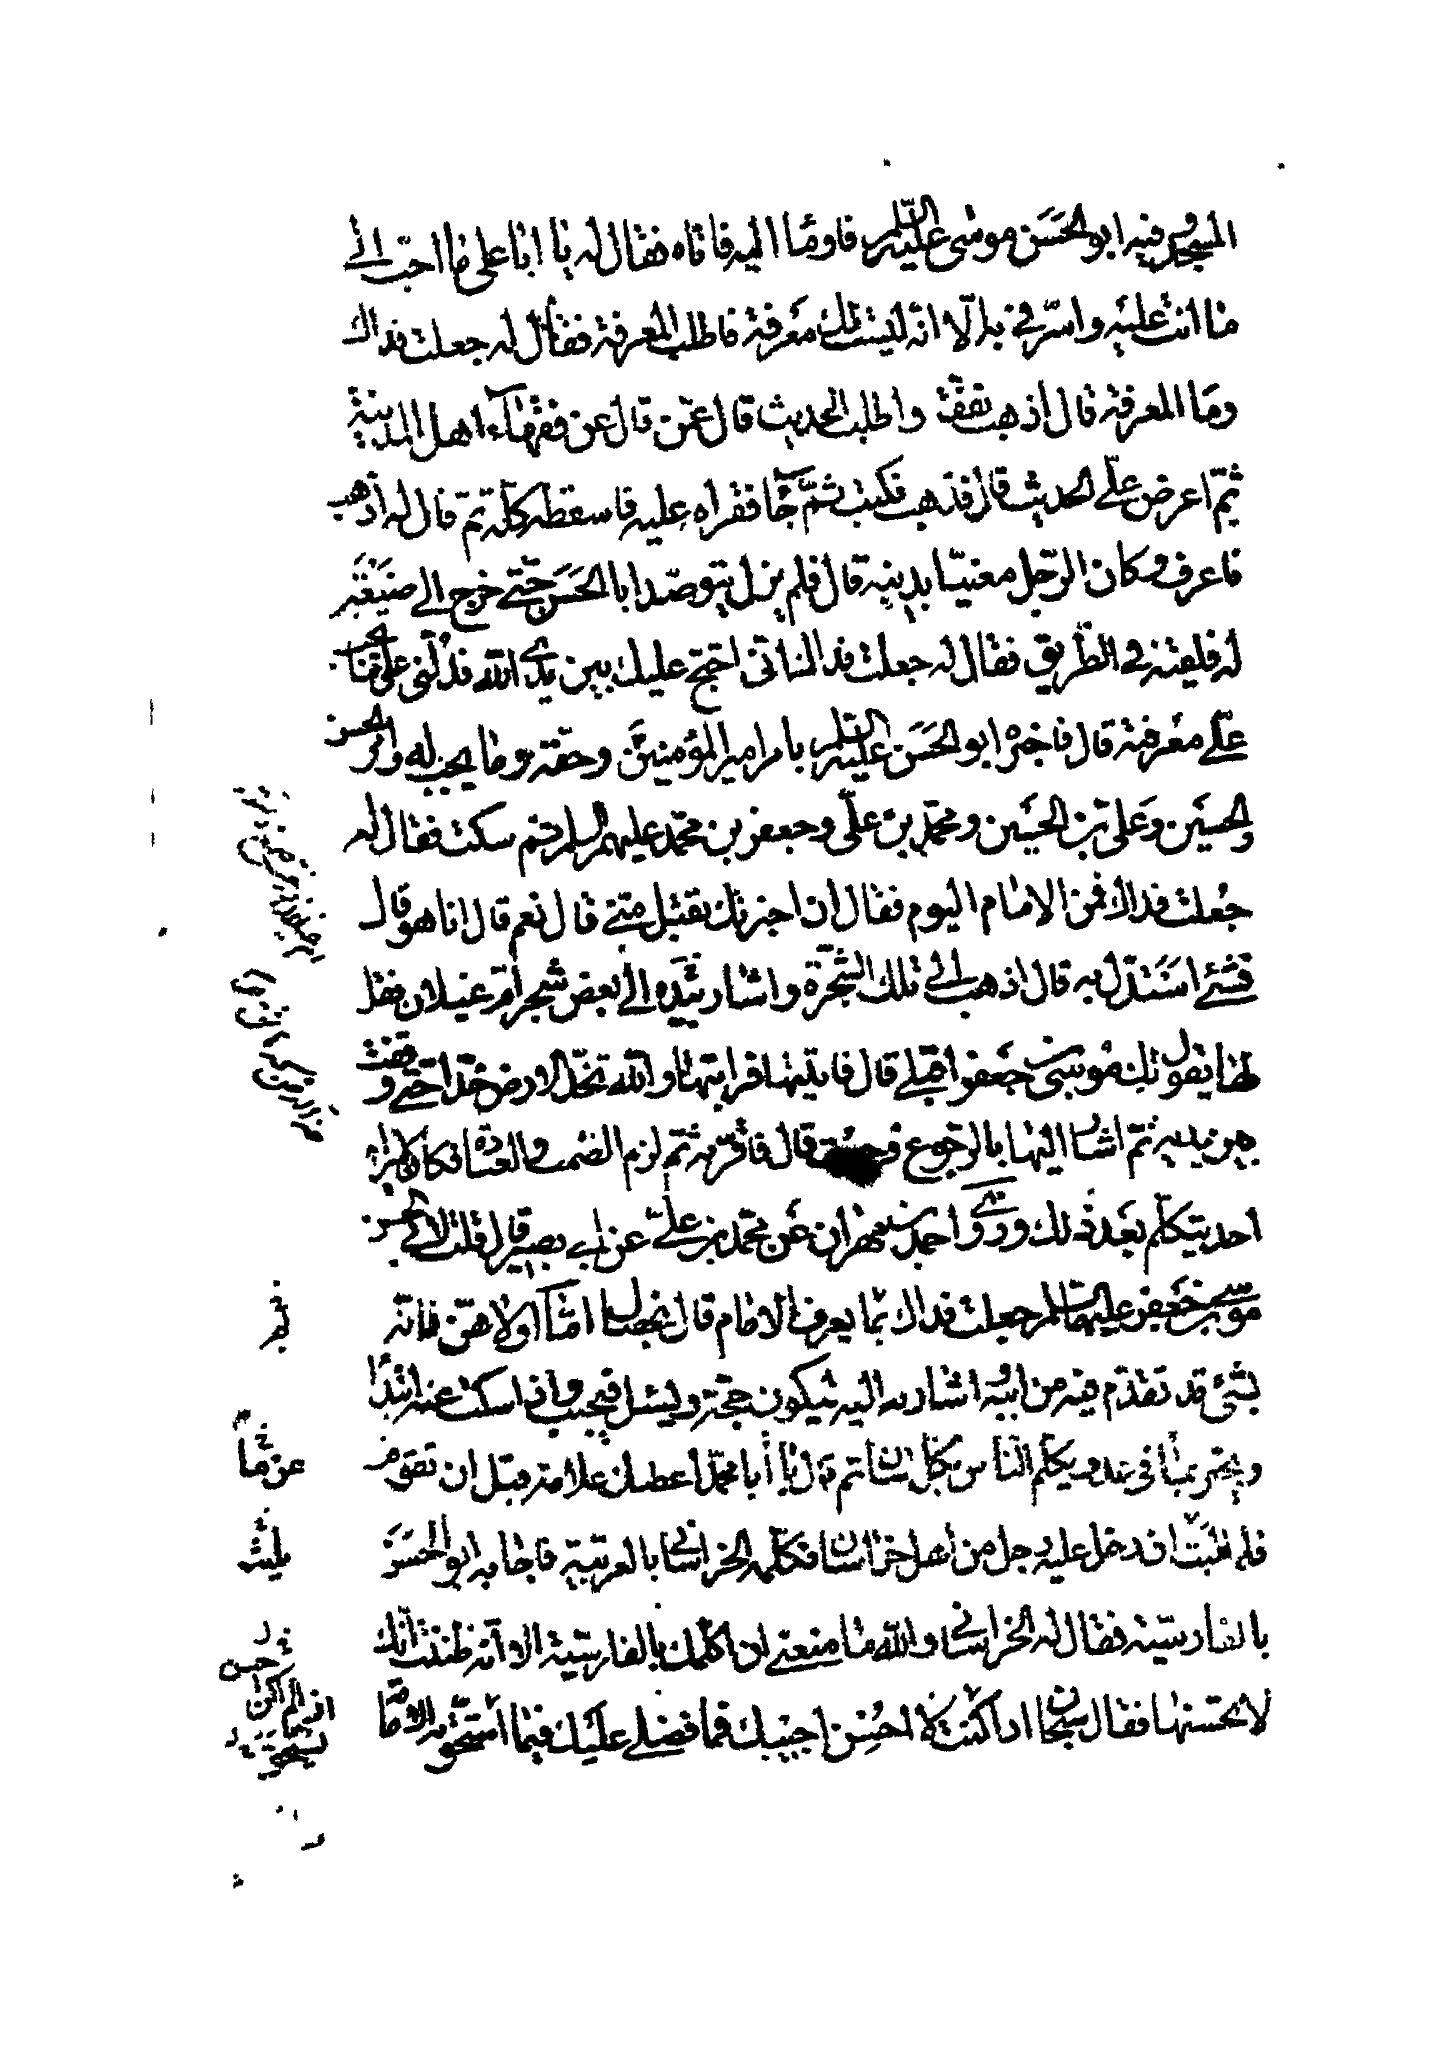 المسجد وفيه ابو الحَسَن موسى عليه السلم فاومأ اليه فاتاه فقال له يا ابا على ما احب الي
ما انت عليه واسرّني به الا انه ليست لك معرفة فاطلب المعرفة فقال له جعلت فداك
وما المعرفة قال اذهب تفقه واطلب الحديث قال عمّن قال عن فقهاء اهل المدينة
ثم اعرض عليّ الحديث قال فذهب فكتب ثمّ جآ فقراه عليه فاسقطه كله ثم قال له اذهب
فاعرف وكان الرّجل معنيّا بدينه قال فلم يزل يترصّد ابا الحَسَن حتّى خرج الى ضيعة
له فلقيه في الطّريق فقال له جعلت فداك انّى احتج عليك بين يدي الله فدلّنى على ما يجب
علّى معرفته قال فاخبره ابو الحَسَن عليه السلم بامر امير المؤمنين وحقّه وما يجب له وامر الحسن
والحسين وعلى بن الحسين ومحمّد بن علّى وجعفر بن محمّد عليهم السلم ثم سكت فقال له
جُعلت فداك فمن الامام اليوم فقال ان اخبرتك تقبل منّي قال نعم قال انا هو قال
فشئ استدل به قال اذهب الى تلك الشجرة واشار بيده الى بعض شجر ام غيلان فقل
لها يقول لك موسى بن جعفر اقبلي قال فاتيتها فرايتها والله تخدّ الارض خدا حتى وقفت
بين يديه ثمّ اشار اليها بالرّجوع فرجعت قال فاقرّ به ثمّ لزم الصّمت والعبادة فكان لا يراه
احد يتكلّم بعد ذلك وروى احمد بن مهران عن محمّد بن علىّ عن ابي بصير قال قلت لابي الحسن
موسى بن جعفر عليهما السلم جعلت فداك بما يعرف الامام قال بخصال امّا اولاهن فانّه
بشئ قد تقدّم فيه من ابيه اشارته اليه ليكون حجة ويسئل فيجيب واذا سكت عنه ابتدا
ويخبر بما في غد ويكلّم النّاس بكلّ لسان ثم قال يا أبا محمّد اعطيك علامة قبل ان تقوم
فلم البث ان دخل عليه رجل من اهل خراسان فكلّمه الخراساني بالعربية فاجابه ابو الحسن
بالفارسيّة فقال له الخراساني والله ما منعني ان اكلمك بالفارسيّة الا انّه ظننت انّك
لا تحسنها فقال سبحان الله اذا كنت لا احسن اجيبك فما فضلي عليك فيما استحق به الامامة